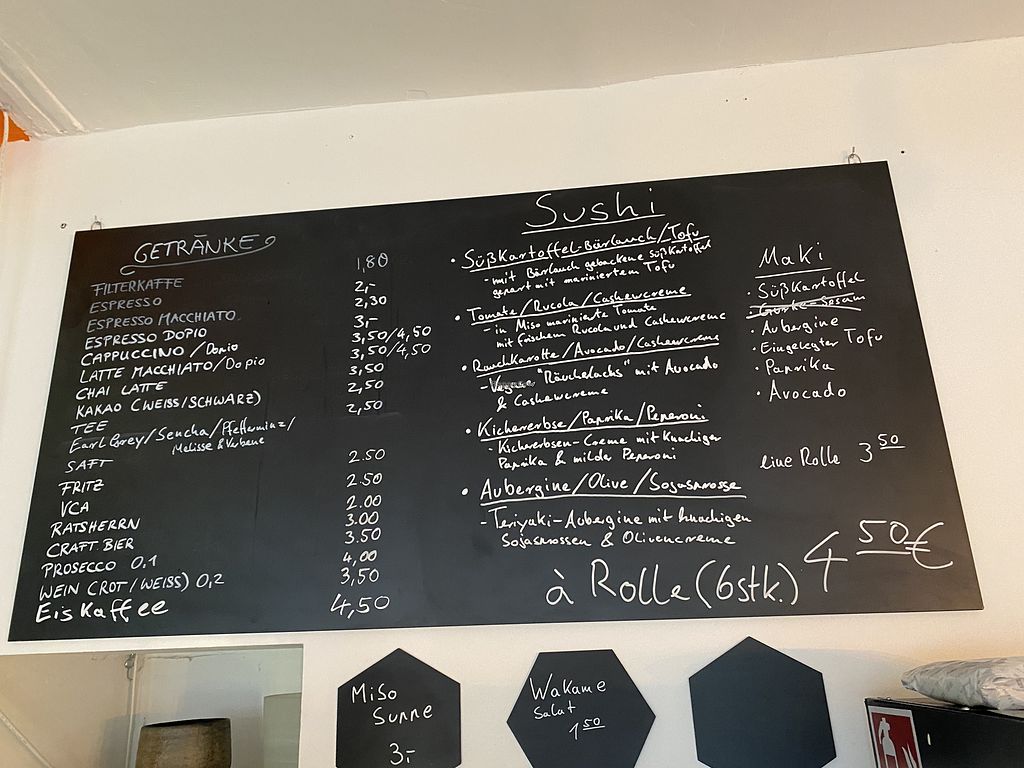 GETRÄNKE
FILTERKAFFE 1,80
ESPRESSO 2,-
ESPRESSO MACCHIATO 2,30
ESPRESSO DOPIO 3,-
CAPPUCCINO / Dopio 3,50/4,50
LATTE MACCHIATO/Dopio 3,50/4,50
CHAI LATTE 3,50
KAKAO (WEISS/SCHWARZ) 2,50
TEE 2,50
Earl Grey/Sencha/Pfefferminz/
Melisse & Verbene
SAFT 2.50
FRITZ 2.50
VCA 2.00
RATSHERRN 3.00
CRAFT BIER 3.50
PROSECCO 0,1 4,00
WEIN (ROT/WEISS) 0,2 3,50
EisKaffee 4,50
Sushi
• Süßkartoffel-Bärlauch/Tofu
- mit Bärlauch gebackene Süßkartoffel
gepaart mit mariniertem Tofu
• Tomate/Rucola/Cashewcreme
- in Miso marinierte Tomate
mit frischem Rucola und Cashewcreme
• Rauchkarotte/Avocado/Cashewcreme
- Veganer "Räucherlachs" mit Avocado
& Cashewcreme
• Kichererbse/Paprika/Peperoni
- Kichererbsen-Creme mit Knackiger
Paprika & milder Peperoni
• Aubergine/Olive/Sojasprosse
- Teriyaki-Aubergine mit knackigen
Sojasprossen & Olivencreme
à Rolle (6stk.) 4 50€
Maki
• Süßkartoffel
• Gurke-Sesam
• Aubergine
• Eingelegter Tofu
• Paprika
• Avocado
eine Rolle 3 50
Miso
Suppe
3,-
Wakame
Salat
1 50